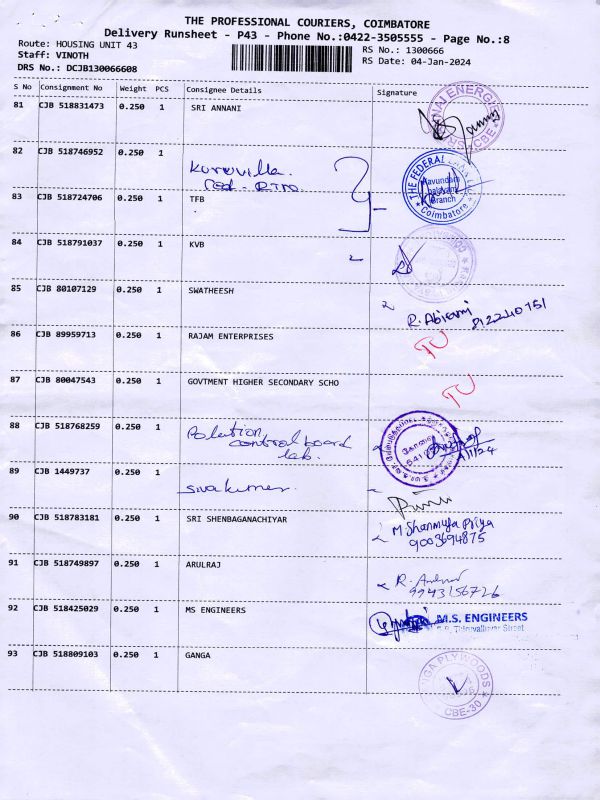 THE PROFESSIONAL COURIERS, COIMBATORE
Delivery Runsheet - P43 - Phone No.:0422-3505555 - Page No.:8
Route: HOUSING UNIT 43
RS No.: 1300666
Staff: VINOTH
RS Date: 04-Jan-2024
DRS No.: DCJB130066608
S No Consignment No Weight PCS Consignee Details Signature
81 CJB 518831473 0.250 1 SRI ANNANI
CBE
82 CJB 518746952 0.250 1
Kuruvilla.
THE FEDERAL
Branch
Coimbatore
83 CJB 518724706 0.250 1 TFB
84 CJB 518791037 0.250 1 KVB
85 CJB 80107129 0.250 1 SWATHEESH
R. Abirami
86 CJB 89959713 0.250 1 RAJAM ENTERPRISES
87 CJB 80047543 0.250 1 GOVTMENT HIGHER SECONDARY SCHO
88 CJB 518768259 0.250 1 Polution
control board
lab.
கோவை
4/1/24
89 CJB 1449737 0.250 1
Sivakumar.
90 CJB 518783181 0.250 1 SRI SHENBAGANACHIYAR
M Shanmuga Priya
9003694875
91 CJB 518749897 0.250 1 ARULRAJ
9943156726
92 CJB 518425029 0.250 1 MS ENGINEERS
M.S. ENGINEERS
Thiruvalluvar Street
93 CJB 518809103 0.250 1 GANGA
PLYWOODS
CBE-30